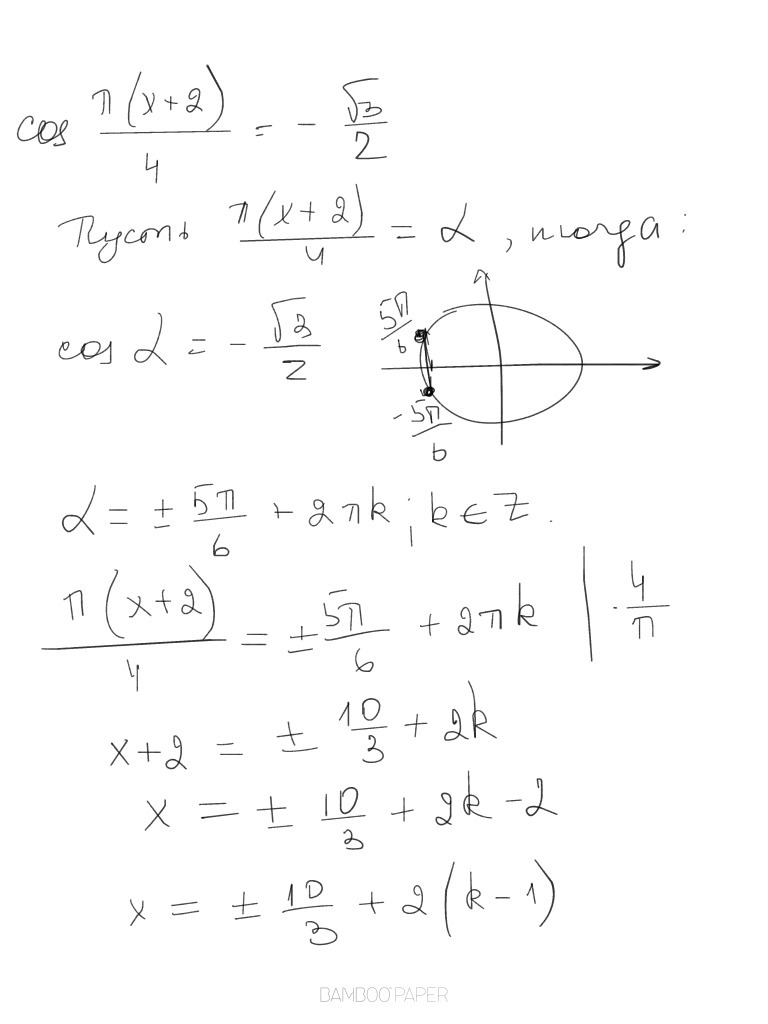 cos π(x+2)/4 = - √3/2
Пусть π(x+2)/4 = α, тогда:
cos α = - √3/2
5π/6
- 5π/6
α = ± 5π/6 + 2πk; k ∈ Z.
π(x+2)/4 = ± 5π/6 + 2πk | · 4/π
x+2 = ± 10/3 + 2k
x = ± 10/3 + 2k - 2
x = ± 10/3 + 2(k-1)
BAMBOO PAPER